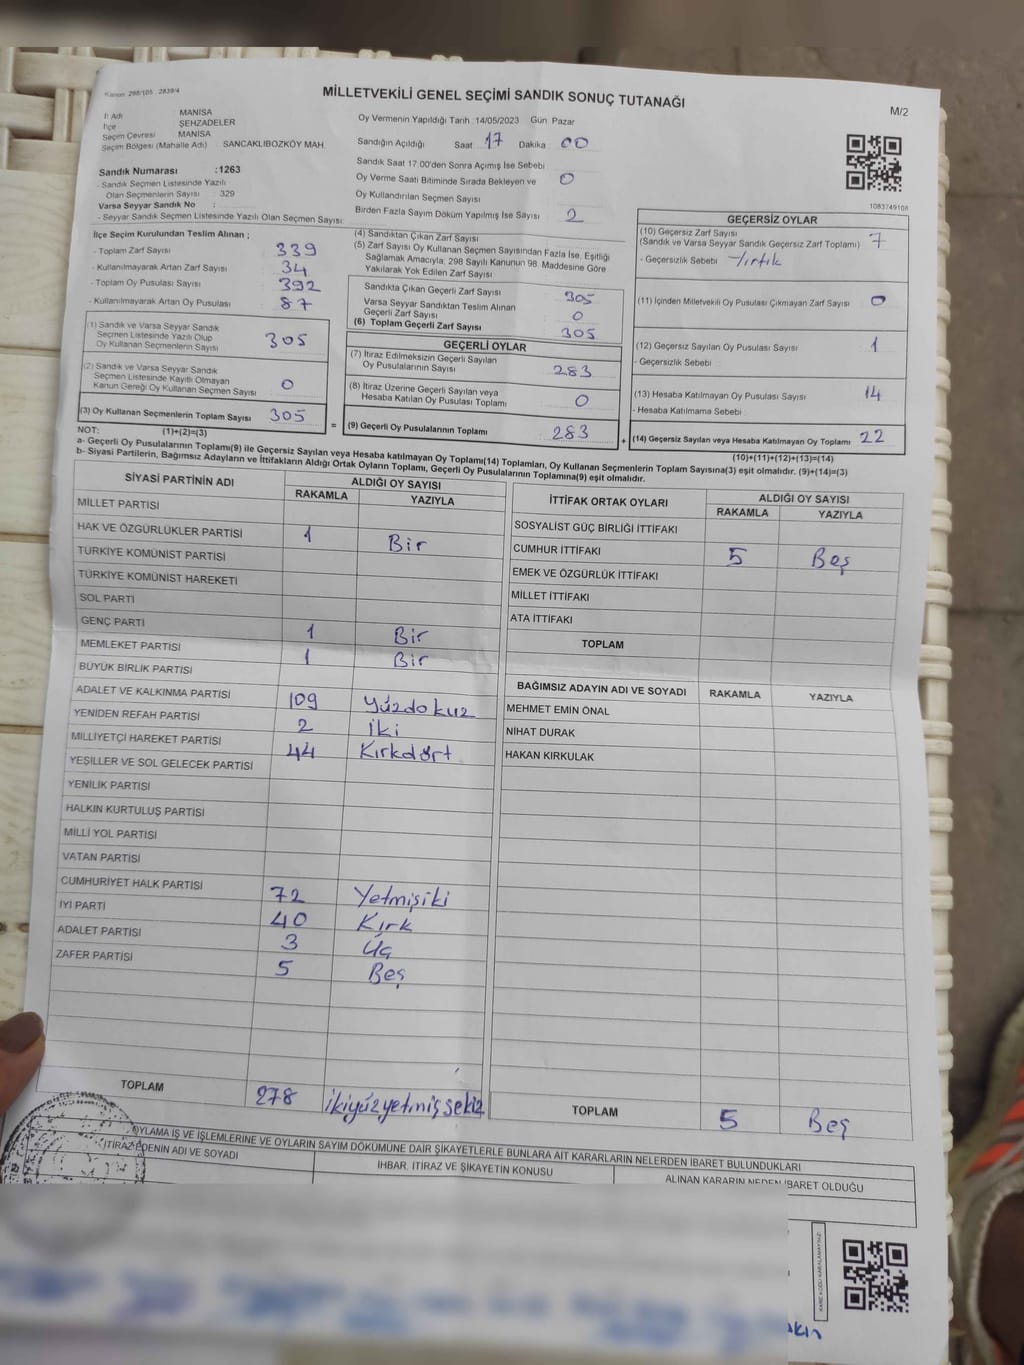 Kanun: 298/105 , 2839/4
MİLLETVEKİLİ GENEL SEÇİMİ SANDIK SONUÇ TUTANAĞI
M/2
İl Adı MANİSA
İlçe ŞEHZADELER
Seçim Çevresi MANİSA
Seçim Bölgesi (Mahalle Adı) SANCAKLIBOZKÖY MAH.
Sandık Numarası :1263
- Sandık Seçmen Listesinde Yazılı
Olan Seçmenlerin Sayısı : 329
Varsa Seyyar Sandık No :
- Seyyar Sandık Seçmen Listesinde Yazılı Olan Seçmen Sayısı:
Oy Vermenin Yapıldığı Tarih :14/05/2023 Gün: Pazar
Sandığın Açıldığı Saat 17 Dakika 00
Sandık Saat 17:00'den Sonra Açımış İse Sebebi
Oy Verme Saati Bitiminde Sırada Bekleyen ve 0
Oy Kullandırılan Seçmen Sayısı
Birden Fazla Sayım Döküm Yapılmış İse Sayısı 2
1083749108
İlçe Seçim Kurulundan Teslim Alınan ;
- Toplam Zarf Sayısı 339
- Kullanılmayarak Artan Zarf Sayısı 34
- Toplam Oy Pusulası Sayısı 392
- Kullanılmayarak Artan Oy Pusulası 87
(1) Sandık ve Varsa Seyyar Sandık
Seçmen Listesinde Yazılı Olup
Oy Kullanan Seçmenlerin Sayısı 305
(2) Sandık ve Varsa Seyyar Sandık
Seçmen Listesinde Kayıtlı Olmayan
Kanun Gereği Oy Kullanan Seçmen Sayısı 0
(3) Oy Kullanan Seçmenlerin Toplam Sayısı 305
(1)+(2)=(3)
(4) Sandıktan Çıkan Zarf Sayısı
(5) Zarf Sayısı Oy Kullanan Seçmen Sayısından Fazla İse, Eşitliği
Sağlamak Amacıyla, 298 Sayılı Kanunun 98. Maddesine Göre
Yakılarak Yok Edilen Zarf Sayısı
Sandıkta Çıkan Geçerli Zarf Sayısı 305
Varsa Seyyar Sandıktan Teslim Alınan
Geçerli Zarf Sayısı 0
(6) Toplam Geçerli Zarf Sayısı 305
GEÇERLİ OYLAR
(7) İtiraz Edilmeksizin Geçerli Sayılan
Oy Pusulalarının Sayısı 283
(8) İtiraz Üzerine Geçerli Sayılan veya
Hesaba Katılan Oy Pusulası Toplamı 0
= (9) Geçerli Oy Pusulalarının Toplamı 283
GEÇERSİZ OYLAR
(10) Geçersiz Zarf Sayısı
(Sandık ve Varsa Seyyar Sandık Geçersiz Zarf Toplamı) 7
- Geçersizlik Sebebi Yırtık
(11) İçinden Milletvekili Oy Pusulası Çıkmayan Zarf Sayısı 0
(12) Geçersiz Sayılan Oy Pusulası Sayısı 1
- Geçersizlik Sebebi
(13) Hesaba Katılmayan Oy Pusulası Sayısı 14
- Hesaba Katılmama Sebebi
+ (14) Geçersiz Sayılan veya Hesaba Katılmayan Oy Toplamı 22
(10)+(11)+(12)+(13)=(14)
NOT:
a- Geçerli Oy Pusulalarının Toplamı(9) ile Geçersiz Sayılan veya Hesaba Katılmayan Oy Toplamı(14) Toplamları, Oy Kullanan Seçmenlerin Toplam Sayısına(3) eşit olmalıdır. (9)+(14)=(3)
b- Siyasi Partilerin, Bağımsız Adayların ve İttifakların Aldığı Ortak Oyların Toplamı, Geçerli Oy Pusulalarının Toplamına(9) eşit olmalıdır.
SİYASİ PARTİNİN ADI ALDIĞI OY SAYISI
RAKAMLA YAZIYLA
MİLLET PARTİSİ
HAK VE ÖZGÜRLÜKLER PARTİSİ 1 Bir
TÜRKİYE KOMÜNİST PARTİSİ
TÜRKİYE KOMÜNİST HAREKETİ
SOL PARTİ
GENÇ PARTİ 1 Bir
MEMLEKET PARTİSİ 1 Bir
BÜYÜK BİRLİK PARTİSİ
ADALET VE KALKINMA PARTİSİ 109 Yüzdokuz
YENİDEN REFAH PARTİSİ 2 İki
MİLLİYETÇİ HAREKET PARTİSİ 44 Kırkdört
YEŞİLLER VE SOL GELECEK PARTİSİ
YENİLİK PARTİSİ
HALKIN KURTULUŞ PARTİSİ
MİLLİ YOL PARTİSİ
VATAN PARTİSİ
CUMHURİYET HALK PARTİSİ 72 Yetmişiki
İYİ PARTİ 40 Kırk
ADALET PARTİSİ 3 Üç
ZAFER PARTİSİ 5 Beş
TOPLAM 278 ikiyüzyetmişsekiz
İTTİFAK ORTAK OYLARI ALDIĞI OY SAYISI
RAKAMLA YAZIYLA
SOSYALİST GÜÇ BİRLİĞİ İTTİFAKI
CUMHUR İTTİFAKI 5 Beş
EMEK VE ÖZGÜRLÜK İTTİFAKI
MİLLET İTTİFAKI
ATA İTTİFAKI
TOPLAM
BAĞIMSIZ ADAYIN ADI VE SOYADI RAKAMLA YAZIYLA
MEHMET EMİN ÖNAL
NİHAT DURAK
HAKAN KIRKULAK
TOPLAM 5 Beş
OYLAMA İŞ VE İŞLEMLERİNE VE OYLARIN SAYIM DÖKÜMÜNE DAİR ŞİKAYETLERLE BUNLARA AİT KARARLARIN NELERDEN İBARET BULUNDUKLARI
İTİRAZ EDENİN ADI VE SOYADI
İHBAR, İTİRAZ VE ŞİKAYETİN KONUSU
ALINAN KARARIN NEDEN İBARET OLDUĞU
KARE KODU KARALAMAYINIZ!